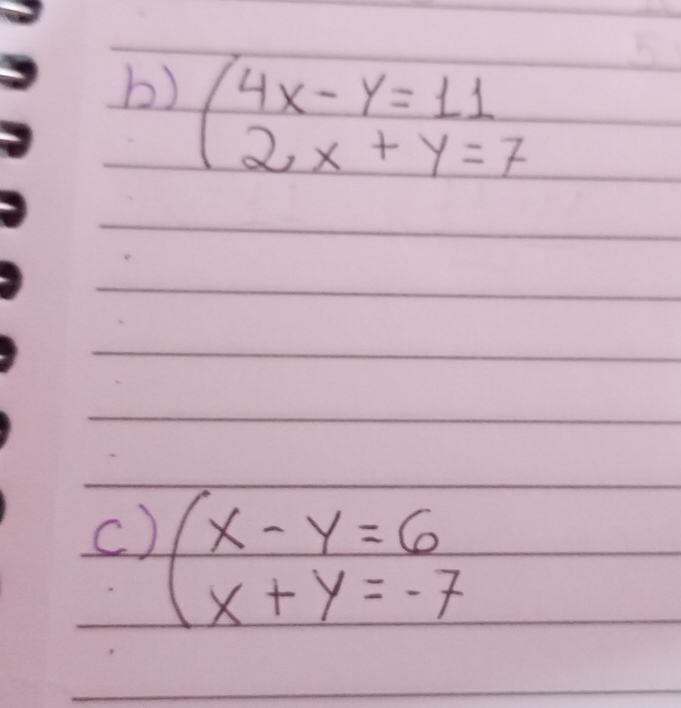 b) (4x - y = 11
2x + y = 7
c) (x - y = 6
x + y = -7